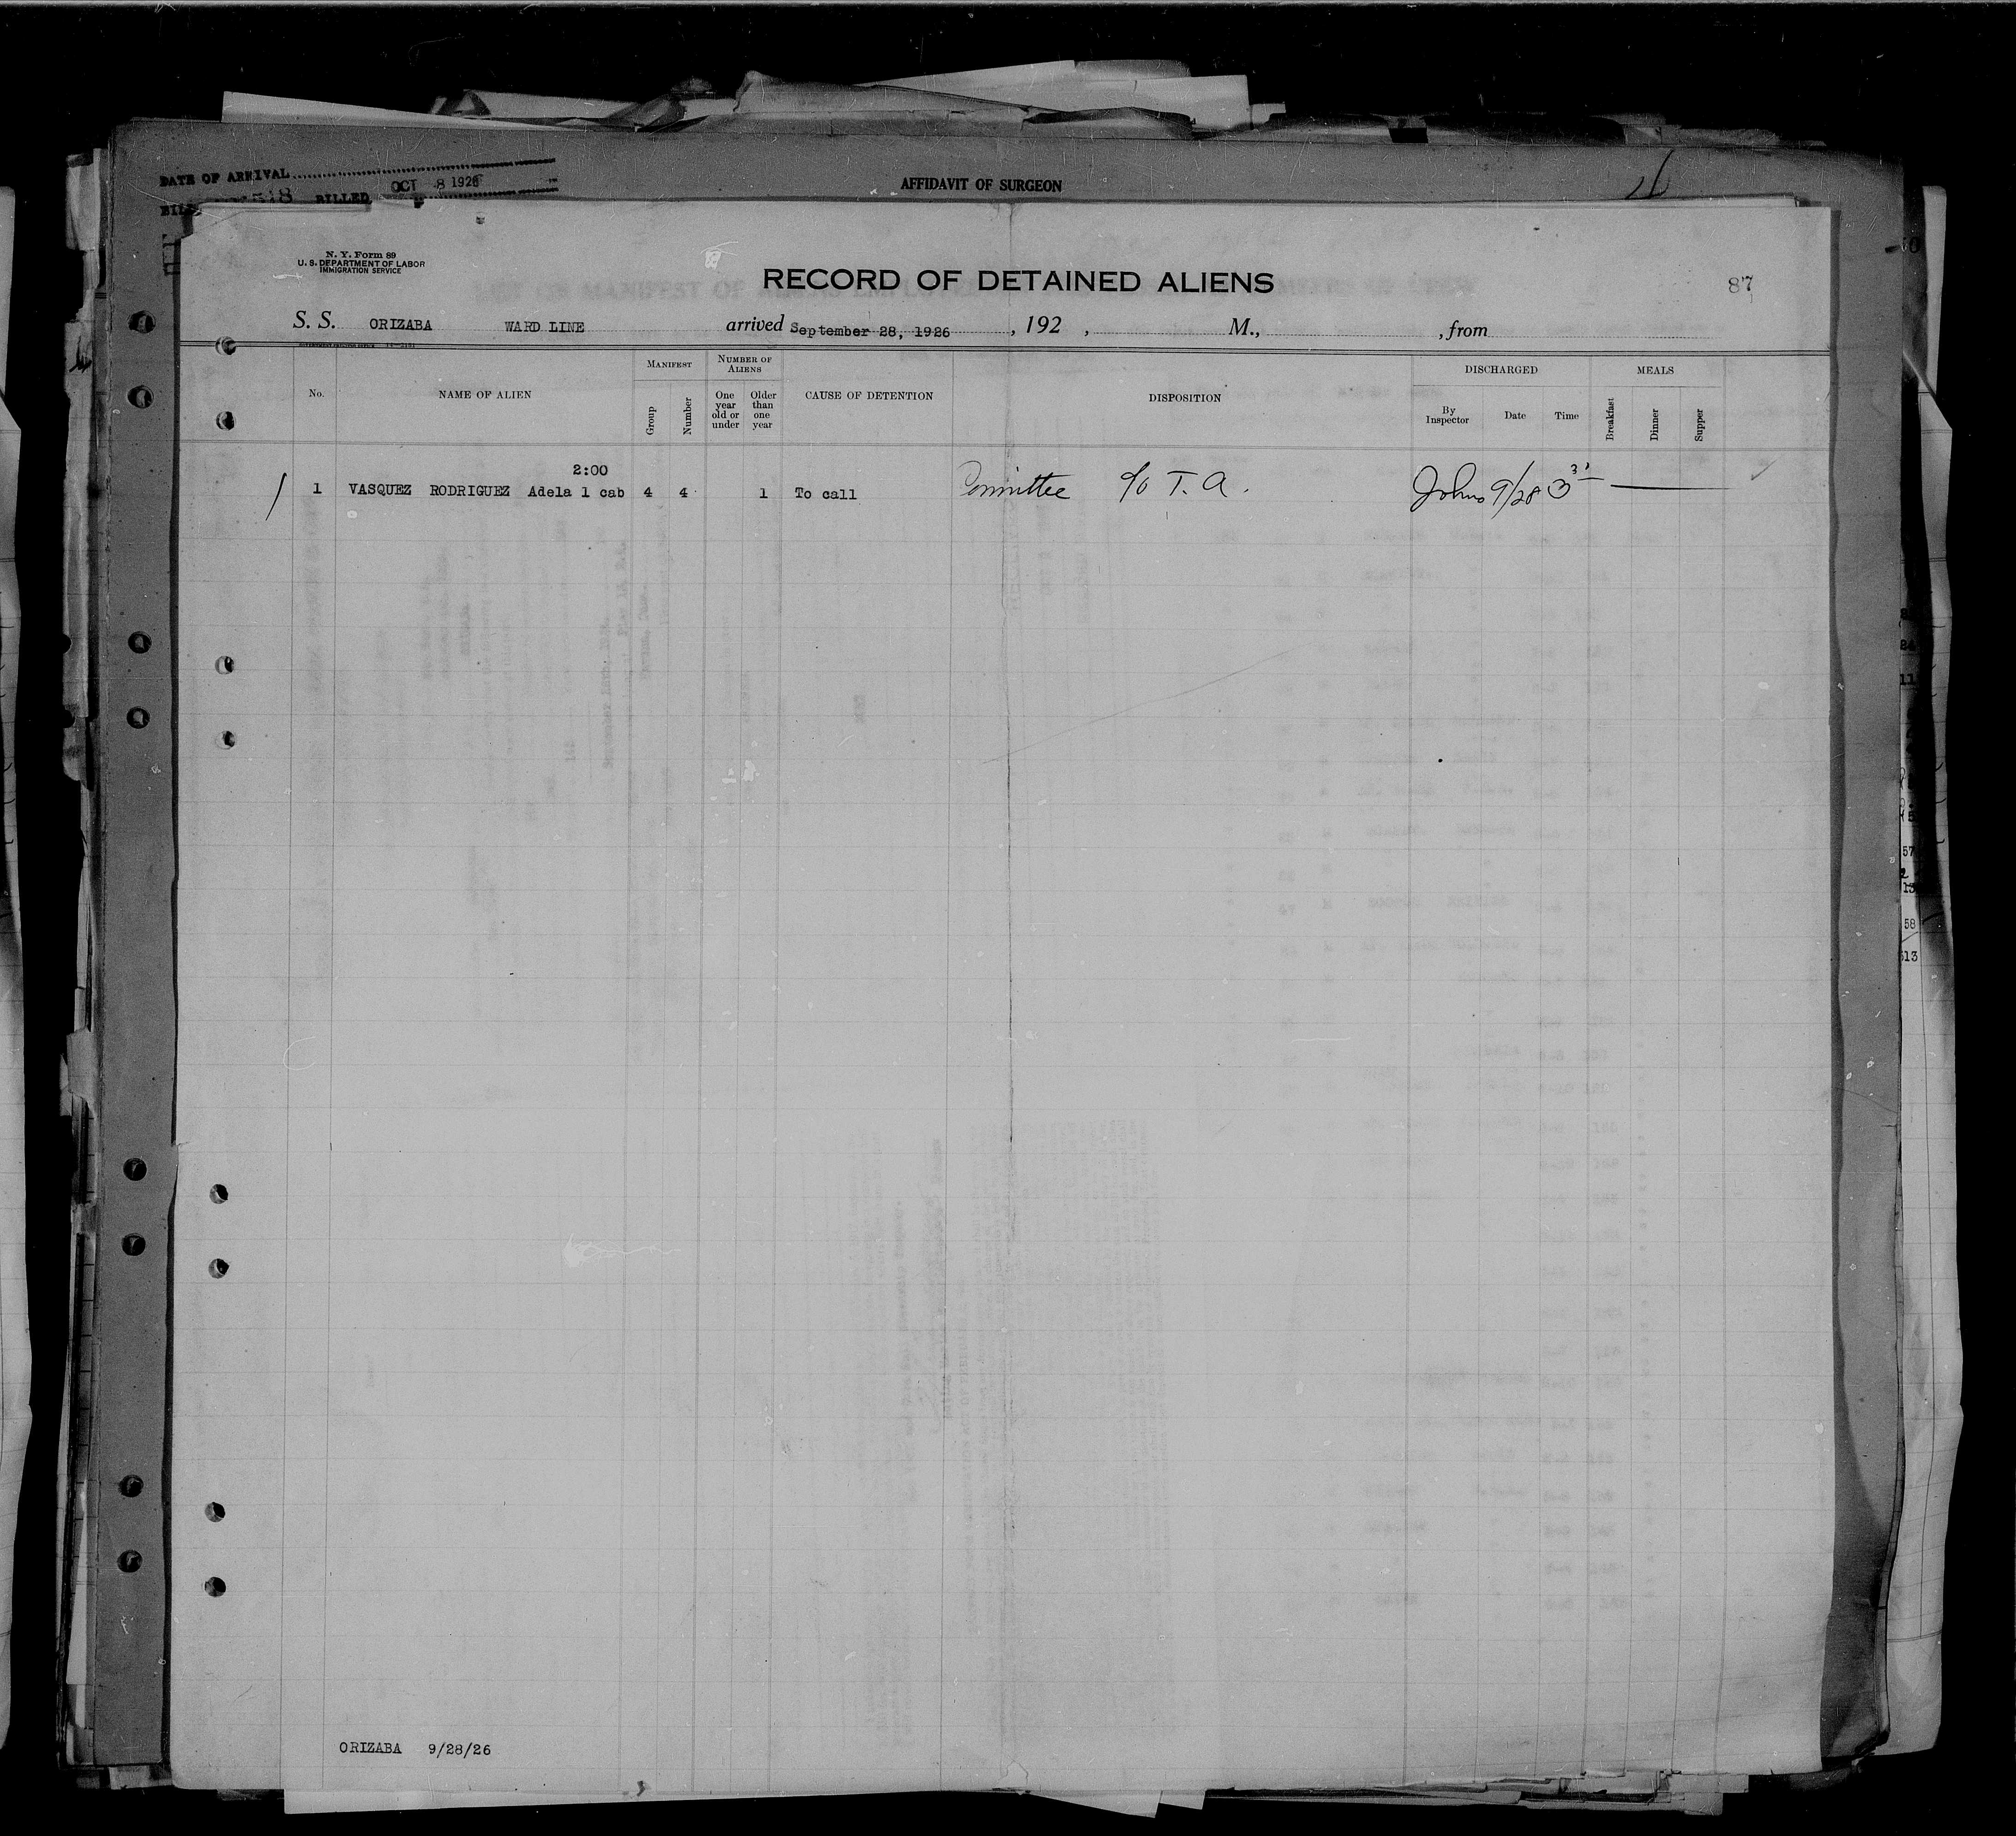 DATE OF ARRIVAL
518 BILLED OCT 8 1926
AFFIDAVIT OF SURGEON
N. Y. Form 89
U. S. DEPARTMENT OF LABOR
IMMIGRATION SERVICE
RECORD OF DETAINED ALIENS
87
S. S. ORIZABA WARD LINE arrived September 28, 1926, 192 , M., , from
No. NAME OF ALIEN MANIFEST Group Number NUMBER OF ALIENS One year old or under Older than one year CAUSE OF DETENTION DISPOSITION DISCHARGED By Inspector Date Time MEALS Breakfast Dinner Supper
2:00
1 VASQUEZ RODRIGUEZ Adela 1 cab 4 4 1 To call Committee c/o T. A. Johns 9/28
ORIZABA 9/28/26